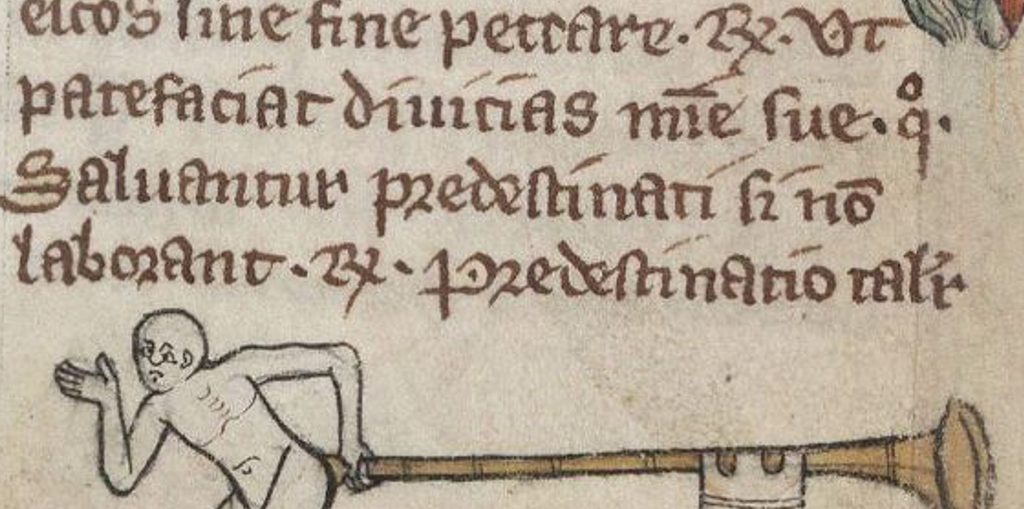 eicos sine fine peccare. ℞. Ut
patefaciat diuicias mīe sue. qͦ.
Saluantur predestinati si nō
laborant. ℞. Predestinatio talit̾